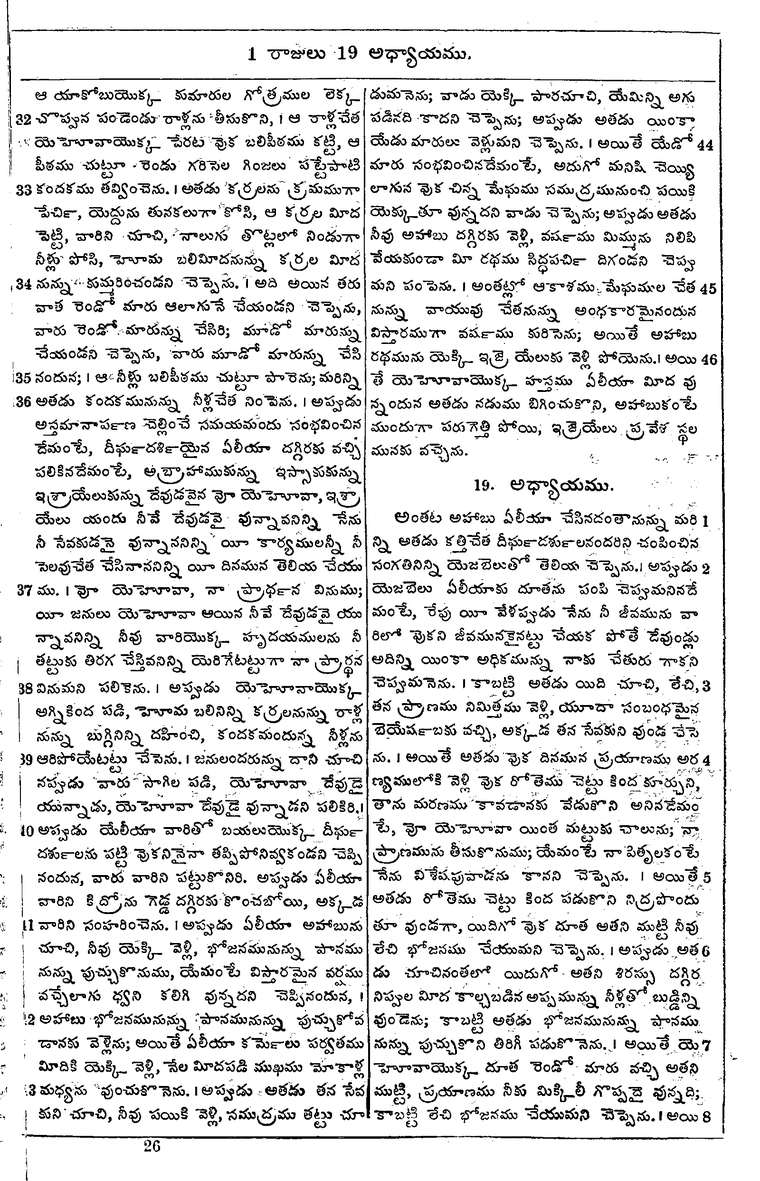 1 రాజులు 19 అధ్యాయము.
ఆ యాకోబుయొక్క కుమారుల గోత్రముల లెక్క
32 చొప్పున పండెండు రాళ్లను తీసుకొని, । ఆ రాళ్లచేత
యెహోవాయొక్క పేరట వొక బలిపీఠము కట్టి, ఆ
పీఠము చుట్టూ రెండు గరిసెల గింజలు పట్టేపాటి
33 కందకము తవ్వించెను. । అతడు కర్రలను క్రమముగా
పేచిన౯, యెద్దును తునకలుగా కోసి, ఆ కర్రల మీద
పెట్టి, వారిని చూచి, నాలుగు తొట్లలో నిండుగా
నీళ్లు పోసి, హెూమ బలిమీదనున్ను కర్రల మీద
34 నున్ను కుమ్మరించండని చెప్పెను. । అది అయిన తరు
వాత రెండో మారు ఆలాగునే చేయండని చెప్పెను,
వారు రెండో మారున్ను చేసిరి; మూడో మారున్ను
చేయండని చెప్పెను, వారు మూడో మారున్ను చేసి
35 నందున; । ఆ నీళ్లు బలిపీఠము చుట్టూ పారెను; మరిన్ని
36 అతడు కందకమునున్ను నీళ్లచేత నింపెను. । అప్పుడు
అస్తమానాపణ౯ చెల్లించే సమయమందు సంభవించిన
దేమంటే, దీఘ౯దశి౯యైన ఏలీయా దగ్గిరకు వచ్చి
పలికినదేమంటే, అబ్రాహాముకున్ను ఇస్సాకుకున్ను
ఇశ్రాయేలుకున్ను దేవుడవైన వో యెహోవా, ఇశ్రా
యేలు యందు నీవే దేవుడవై వున్నావనిన్ని నేను
నీ సేవకుడనై వున్నాననిన్ని యీ కార్యములన్నీ నీ
సెలవుచేత చేసినాననిన్ని యీ దినమున తెలియ చేయు
37 ము. । వో యెహోవా, నా ప్రాథ౯న వినుము;
యీ జనులు యెహోవా ఆయిన నీవే దేవుడవై యు
న్నావనిన్ని నీవు వారియొక్క హృదయములను నీ
తట్టుకు తిరగ చేస్తివనిన్ని యెరిగేటట్టుగా నా ప్రార్థన
38 వినుమని పలికెను. । అప్పుడు యెహోవాయొక్క
అగ్నికింద పడి, హెూమ బలినిన్ని కర్రలనున్ను రాళ్ల
నున్ను బుగ్గినిన్ని దహించి, కందకమందున్న నీళ్లను
39 ఆరిపోయేటట్టు చేసెను. । జనులందరున్ను దాని చూచి
నప్పుడు వారు సాగిల పడి, యెహోవా దేవుడై
యున్నాడు, యెహోవా దేవుడై వున్నాడని పలికిరి. ।
40 అప్పుడు యేలీయా వారితో బయలుయొక్క దీఘ౯
దశు౯లను పట్టి వొకనినైనా తప్పిపోనివ్వకండని చెప్పి
నందున, వారు వారిని పట్టుకొనిరి. అప్పుడు ఏలీయా
వారిని కిద్రోను గెడ్డ దగ్గిరకు కొంచపోయి, అక్కడ
41 వారిని సంహరించెను. । అప్పుడు ఏలీయా అహాబును
చూచి, నీవు యెక్కి వెళ్లి, భోజనమునున్ను పానము
నున్ను పుచ్చుకొనుము, యేమంటే విస్తారమైన వర్షము
వచ్చేలాగు ధ్వని కలిగి వున్నదని చెప్పినందున, ।
42 అహాబు భోజనమునున్ను పానమునున్ను పుచ్చుకోవ
డానకు వెళ్లెను; అయితే ఏలీయా కమే౯లు పర్వతము
మీదికి యెక్కి వెళ్లి, నేల మీదపడి ముఖము మోకాళ్ల
43 మధ్యను వుంచుకొనెను. । అప్పుడు అతడు తన సేవ
కుని చూచి, నీవు పయికి వెళ్లి, సముద్రము తట్టు చూ
డుమనెను; వాడు యెక్కి పారచూచి, యేమిన్ని అగు
పడినది కాదని చెప్పెను; అప్పుడు అతడు యింకా
యేడు మారులు వెళ్లుమని చెప్పెను. । అయితే యేడో 44
మారు సంభవించినదేమంటే, అదుగో మనిషి చెయ్యి
లాగున వొక చిన్న మేఘము సముద్రమునుంచి పయికి
యెక్కుతూ వున్నదని వాడు చెప్పెను; అప్పుడు అతడు
నీవు అహాబు దగ్గిరకు వెళ్లి, వష౯ము మిమ్మును నిలిపి
వేయకుండా మీ రథము సిద్ధపచి౯ దిగండని చెప్పు
మని పంపెను. । అంతట్లో ఆకాశము మేఘముల చేత 45
నున్ను వాయువు చేతనున్ను అంధకారమైనందున
విస్తారముగా వష౯ము కురిసెను; అయితే అహాబు
రథమును యెక్కి ఇజ్రె యేలుకు వెళ్లి పోయెను. । అయి 46
తే యెహోవాయొక్క హస్తము ఏలీయా మీద వు
న్నందున అతడు నడుము బిగించుకొని, అహాబుకంటే
ముందుగా పరుగెత్తి పోయి, ఇజ్రెయేలు ప్రవేశ స్థల
మునకు వచ్చెను.
19. అధ్యాయము.
అంతట అహాబు ఏలీయా చేసినదంతానున్ను మరి 1
న్ని అతడు కత్తిచేత దీఘ౯దశు౯లనందరిని చంపించిన
సంగతినిన్ని యెజబెలుతో తెలియ చెప్పెను. । అప్పుడు 2
యెజబెలు ఏలీయాకు దూతను పంపి చెప్పుమనినదే
మంటే, రేపు యీ వేళప్పుడు నేను నీ జీవమును వా
రిలో వొకని జీవమునకైనట్టు చేయక పోతే దేవుండ్లు
అదిన్ని యింకా అధికమున్ను నాకు చేతురు గాకని
చెప్పుమనెను. । కాబట్టి అతడు యిది చూచి, లేచి, 3
తన ప్రాణము నిమిత్తము వెళ్లి, యూదా సంబంధమైన
బెయేష౯బకు వచ్చి, అక్కడ తన సేవకుని వుండ చేసె
ను. । అయితే అతడు వొక దినమున ప్రయాణము అర 4
ణ్యములోకి వెళ్లి వొక రోతెము చెట్టు కింద కూర్చుని,
తాను మరణము కావడానకు వేడుకొని అనినదేమం
టే, వో యెహోవా యింత మట్టుకు చాలును; నా
ప్రాణమును తీసుకొనుము; యేమంటే నా పితృలకంటే
నేను విశేషపువాడను కానని చెప్పెను. । అయితే 5
అతడు రోతెము చెట్టు కింద పడుకొని నిద్రపొందు
తూ వుండగా, యిదిగో వొక దూత అతని ముట్టి నీవు
లేచి భోజనము చేయుమని చెప్పెను. । అప్పుడు అత 6
డు చూచినంతలో యిదుగో అతని శిరస్సు దగ్గిర
నిప్పుల మీద కాల్చబడిన అప్పమున్ను నీళ్లతో బుడ్డిన్ని
వుండెను; కాబట్టి అతడు భోజనమునున్ను పానము
నున్ను పుచ్చుకొని తిరిగీ పడుకొనెను. । అయితే యె 7
హోవాయొక్క దూత రెండో మారు వచ్చి అతని
ముట్టి, ప్రయాణము నీకు మిక్కిలీ గొప్పదై వున్నది;
కాబట్టి లేచి భోజనము చేయుమని చెప్పెను. । అయి 8
26